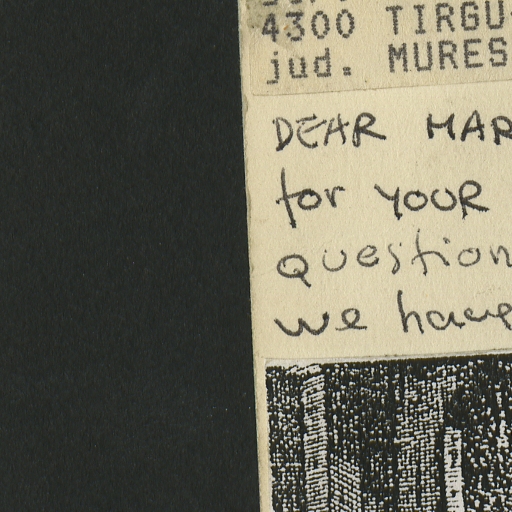 4300 TIRGU
jud. MURES
DEAR MAR
for YOUR
question
we have